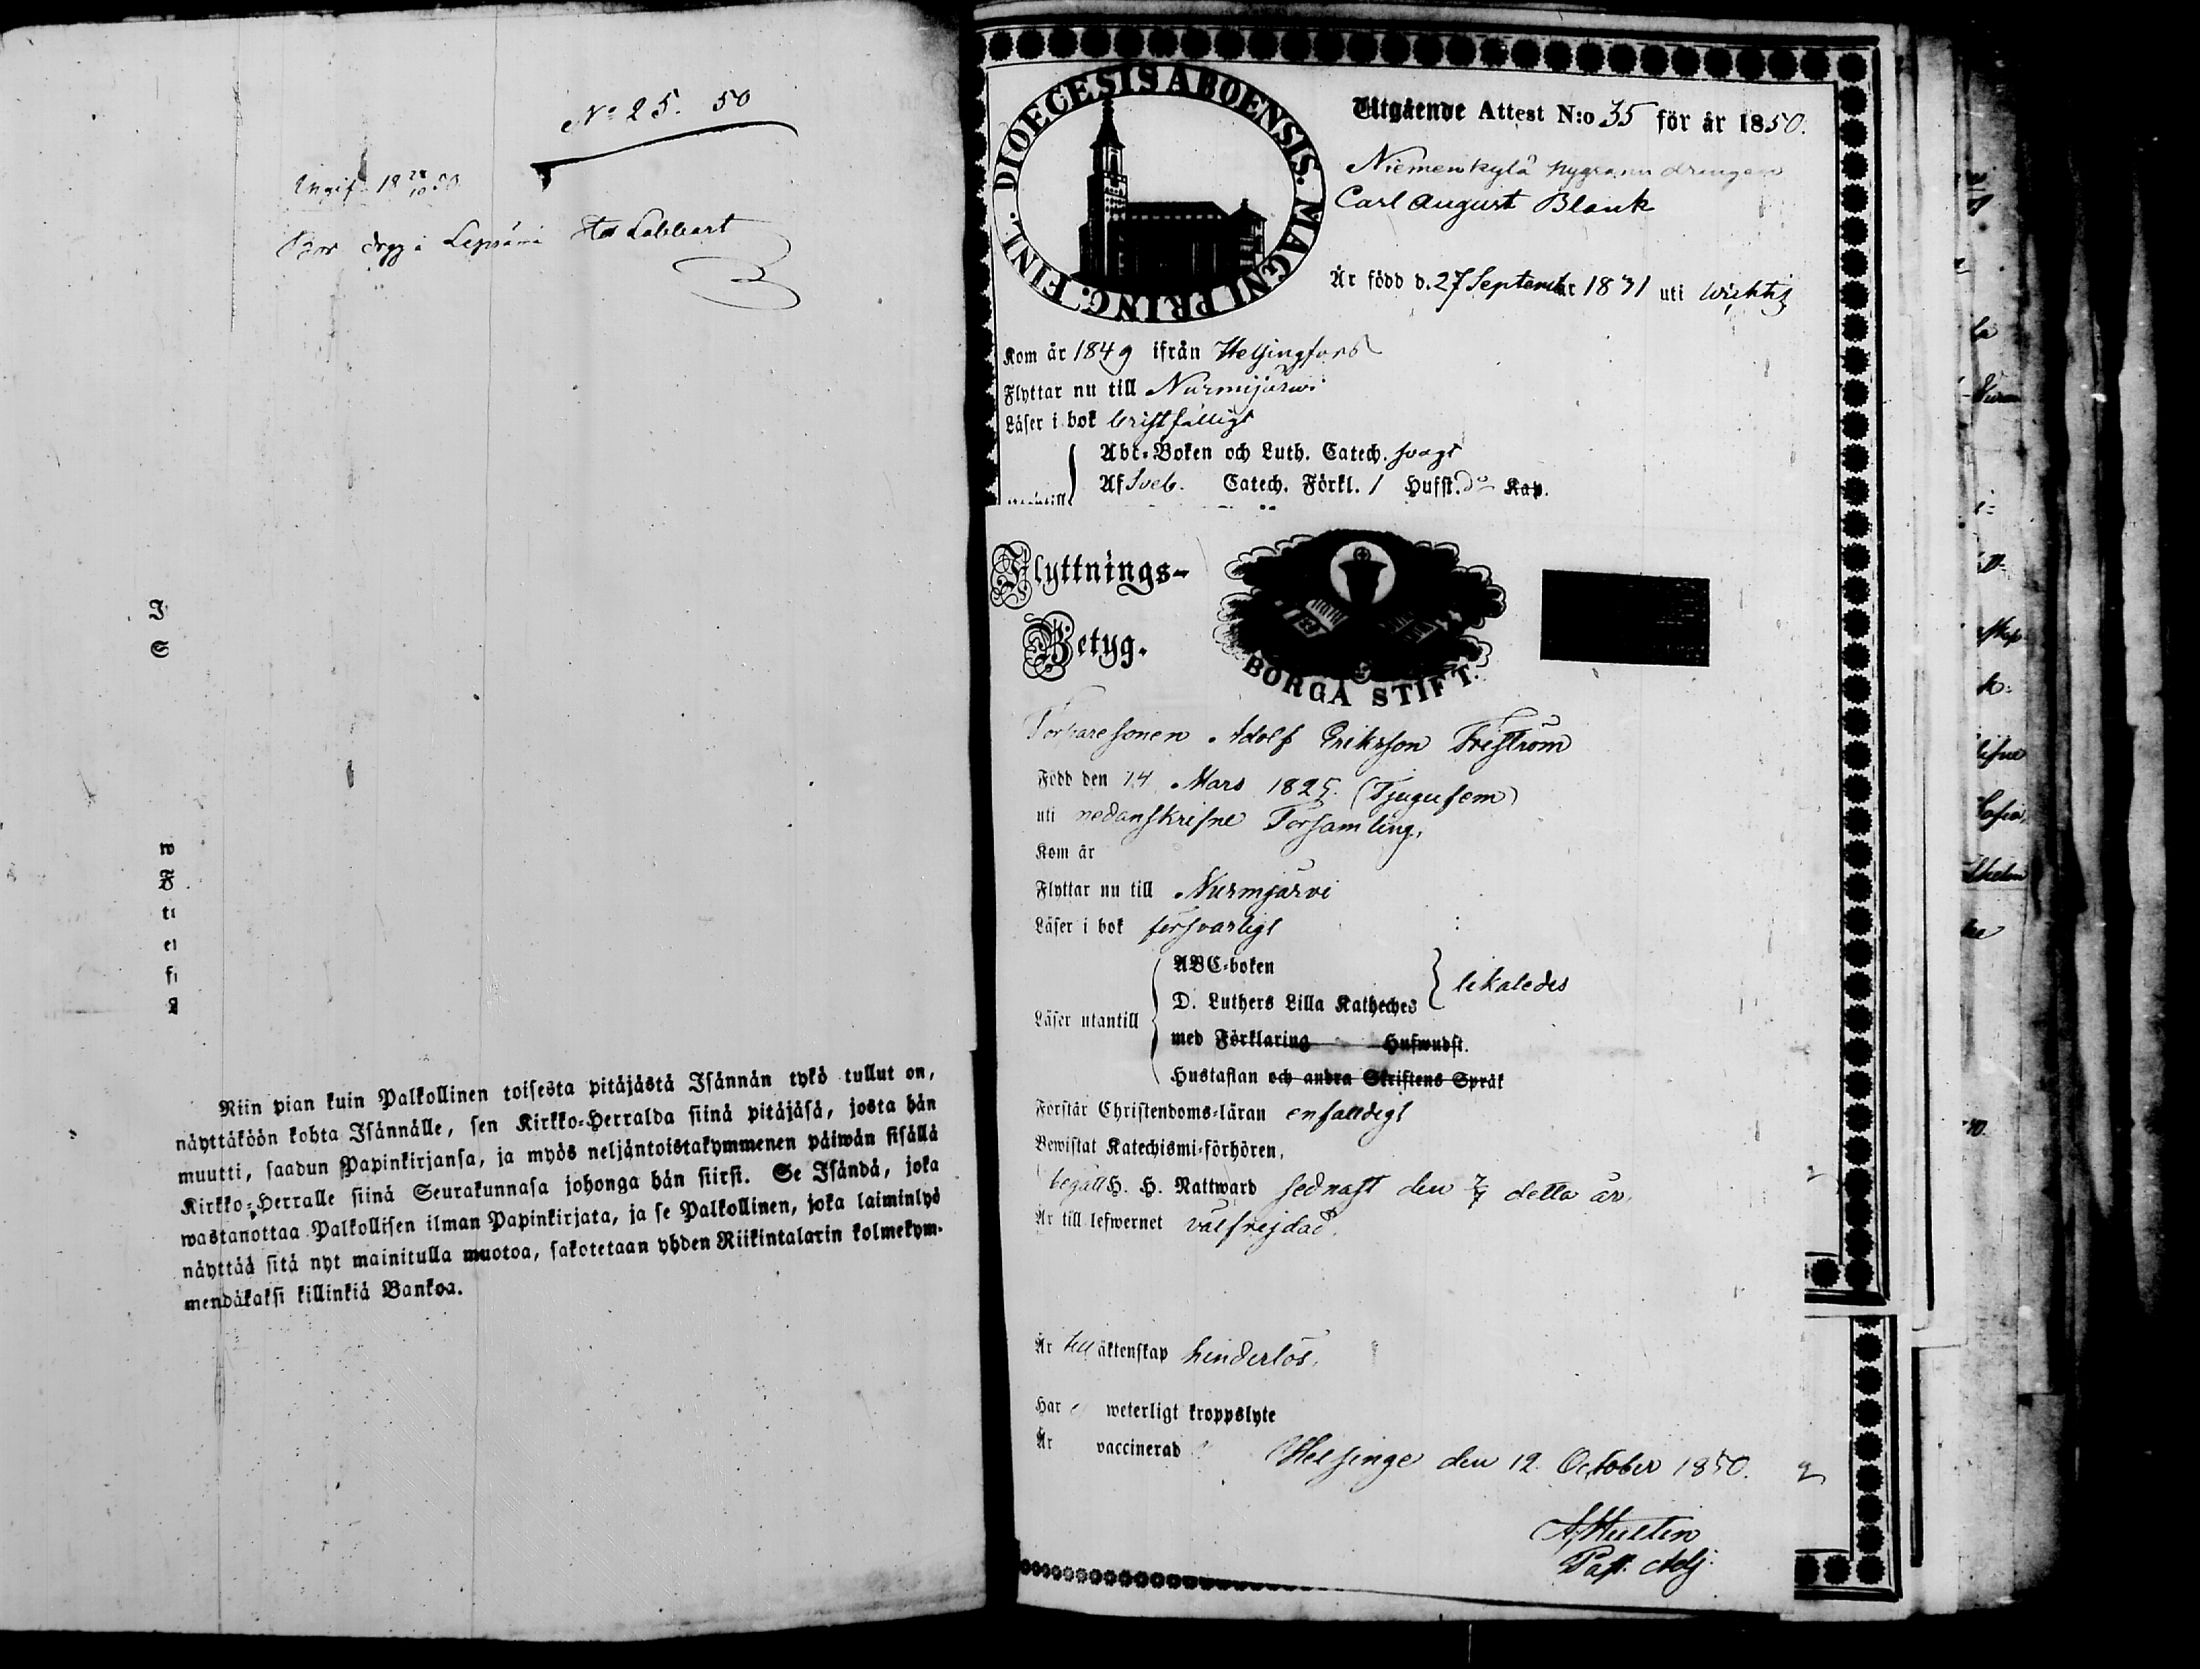 No 25. 50
Ungif 18 28/10 50.
Bor i Lepsämä
I
S
w
F
Niin pian kuin Palkollinen toisesta pitäjästä Isännän tykö tullut on,
näyttäköön kohta Isännälle, sen Kirkko-Herralda siinä pitäjäsä, josta hän
muutti, saadun Papinkirjansa, ja myös neljäntoistakymmenen päiwän sisällä
Kirkko-Herralle siinä Seurakunnasa johonga hän siirsi. Se Isändä, joka
wastanottaa Palkollisen ilman Papinkirjata, ja se Palkollinen, joka laiminlyö
näyttää sitä nyt mainitulla muotoa, sakotetaan yhden Riikintalarin kolmekym-
mendäkaksi killinkiä Bankoa.
DIOECESIS ABOENSIS. MAGNI PRINC. FINL.
Utgående Attest N:o 35 för år 1850.
Niemenkylä drängen
Carl August Blank
Är född d. 27 September 1831 uti Wichtis
Kom år 1849 ifrån Helsingfors
Flyttar nu till Nurmijärwi
Läser i bok bristfälligt
Abc-Boken och Luth. Catech. svagt
Af Sveb. Catech. Förkl. 1 Hufst. do Kap.
Flyttnings-
Betyg.
BORGÅ STIFT.
Torparesonen Adolf Erikson Friström
Född den 14 Mars 1825. (Tjugufem)
uti nedanskrifne Församling.
Kom år
Flyttar nu till Nurmjärvi
Läser i bok försvarligt
ABC-boken
D. Luthers Lilla Katheches likaledes
Läser utantill
med Förklaring Hufwudst.
Hustaflan och andra Skriftens Språk
Förstår Christendoms-läran enfaldigt
Bewistat Katechismi-förhören,
begått H. H. Nattward sednast den 7/7 detta år.
Är till lefwernet välfrejdad.
Är till äktenskap hinderlös.
Har ej weterligt kroppslyte
Är vaccinerad
Helsinge den 12 October 1850.
A. Hultin
Past. Adj.